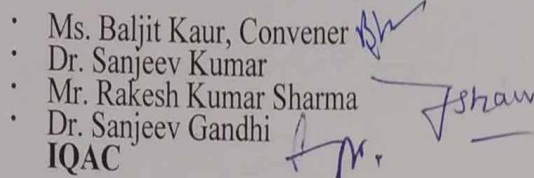 · Ms. Baljit Kaur, Convener
· Dr. Sanjeev Kumar
· Mr. Rakesh Kumar Sharma
· Dr. Sanjeev Gandhi
IQAC